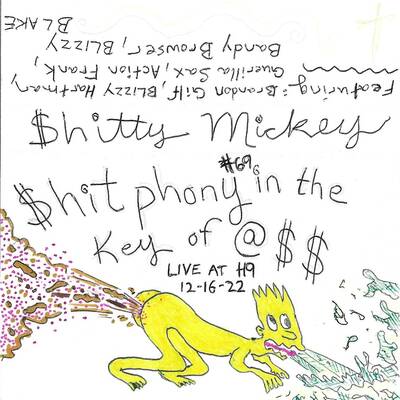 Featuring: Brandon Gilf, Blizzy Hartman,
Guerilla Sax, Action Frank,
Bandy Browser, BLizzy
BLAKE
$hitty Mickey
#69
$hitphony in the
Key of @$$
LIVE AT H9
12-16-22